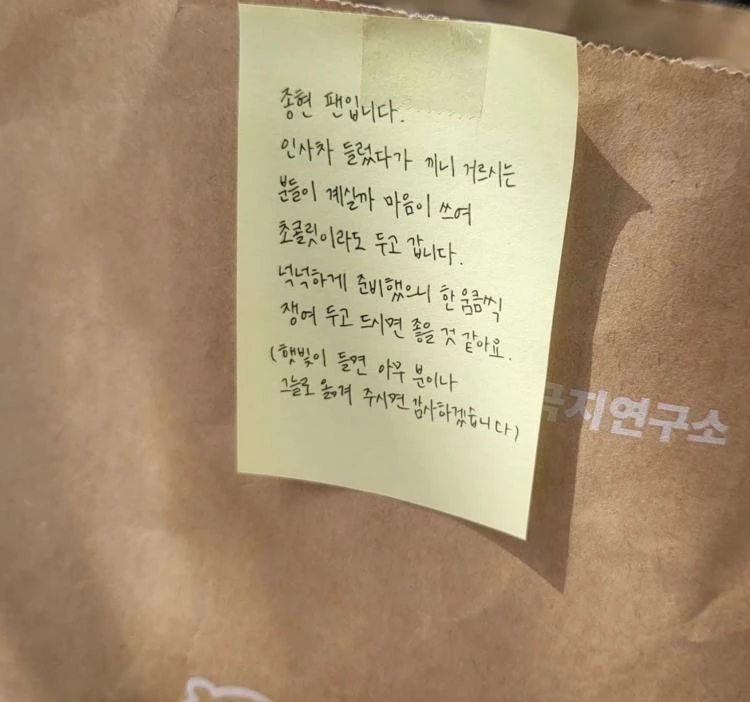 종현 팬입니다.
인사차 들렀다가 끼니 거르시는
분들이 계실까 마음이 쓰여
초콜릿이라도 두고 갑니다.
넉넉하게 준비했으니 한 움큼씩
쟁여 두고 드시면 좋을 것 같아요.
(햇빛이 들면 아무 분이나
그늘로 옮겨 주시면 감사하겠습니다)
지연구소